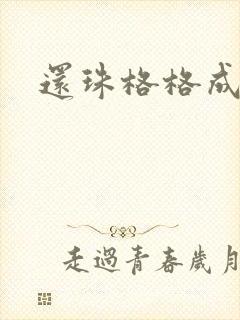 還珠格格成
走過青春歲月